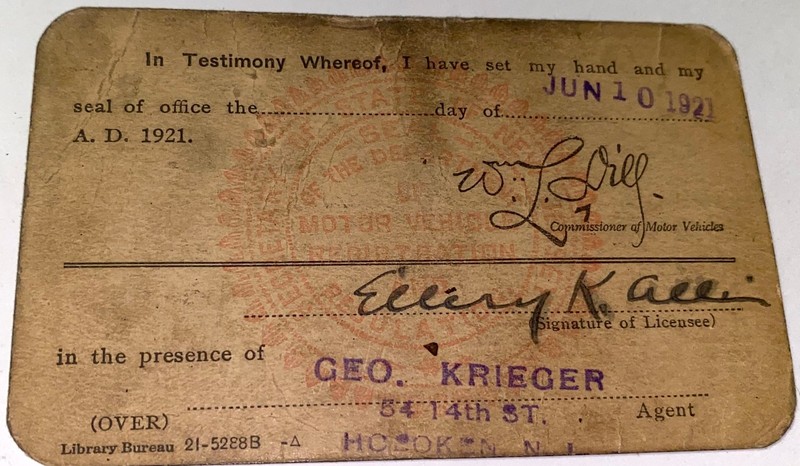 In Testimony Whereof, I have set my hand and my
JUN 10 1921
seal of office the day of
A. D. 1921.
Wm. L. Dill.
Commissioner of Motor Vehicles
SEAL
OF THE DEPARTMENT
OF
MOTOR VEHICLE
REGISTRATION
REGULATION
Ellery K. Allin
(Signature of Licensee)
in the presence of
GEO. KRIEGER
54 14th ST. Agent
(OVER)
Library Bureau 21-5288B -Δ HOBOKEN N. J.